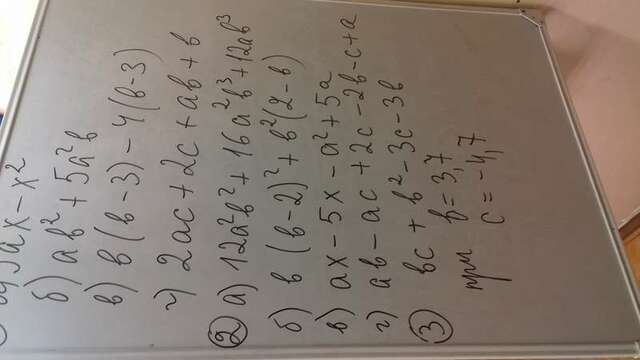 ax - x²
б) ab² + 5a²b
в) b(b-3) - 4(b-3)
г) 2ac + 2c + ab + b
② а) 12a²b² + 16a²b³ + 12ab³
б) b (b-2)² + b²(2-b)
в) ax - 5x - a² + 5a
г) ab - ac + 2c - 2b - c + a
③ bc + b² - 3c - 3b
при b = 3,7
c = -4,7